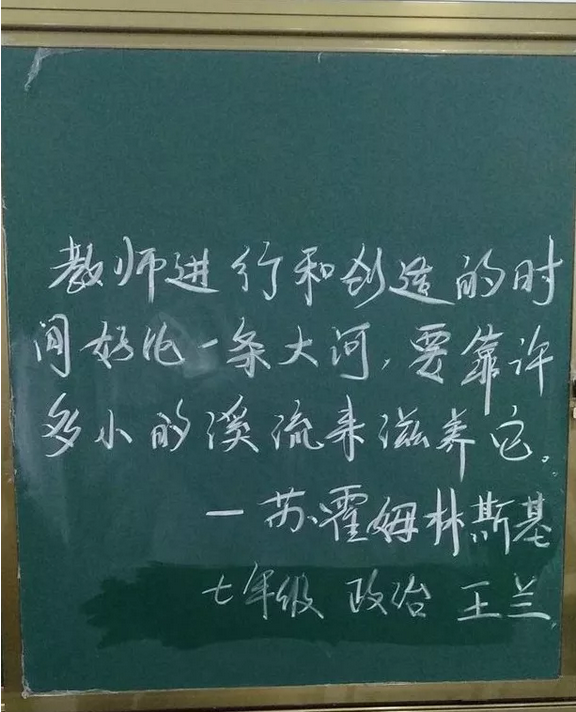 教师进行和创造的时
间好比一条大河,要靠许
多小的溪流来滋养它。
一苏霍姆林斯基
七年级 政治 王兰